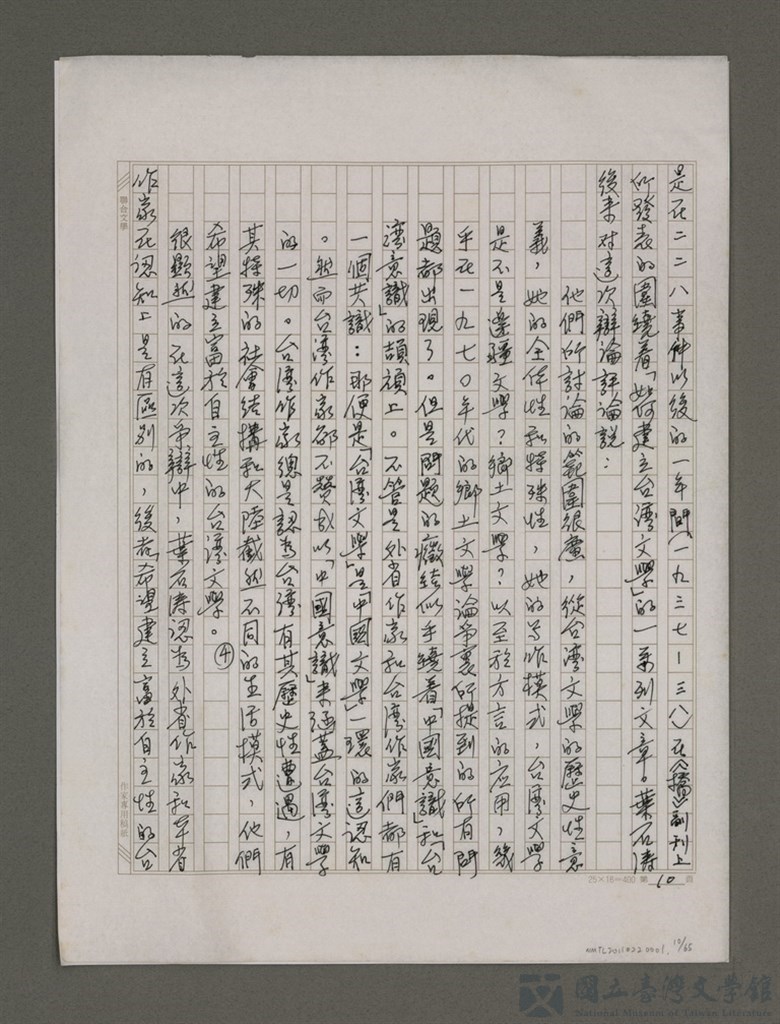 是在二二八事件以後的一年間(一九三七-三八)在《橋》副刊上
所發表的圍繞着「如何建立台灣文學」的一系列文章。葉石濤
後來对這次辯論評論說：
他們所討論的範圍很廣，從台灣文學的歷史性意
義，她的全体性和特殊性，她的寫作模式，台灣文學
是不是邊疆文學？鄉土文學？以至於方言的应用，幾
乎在一九七〇年代的鄉土文學論爭裏所提到的所有問
題都出現了。但是問題的癥结似乎繞着「中國意識」和「台
灣意識」的頡頏上。不管是外省作家和台灣作家們都有
一個共識：那便是「台灣文學」是「中國文學」一環的這認知
。然而台灣作家卻不贊成以「中國意識」來涵蓋台灣文學
的一切。台灣作家總是認為台灣有其歷史性遭遇，有
其特殊的社會结構和大陸截然不同的生活模式，他們
希望建立富於自主性的台灣文學。④
很顯然的在這次爭辯中，葉石濤認為外省作家和本省
作家在認知上是有區別的，後者「希望建立富於自主性的台
聯合文學
作家專用稿紙
25×16=400 第10頁
NMTL20110220001, 12/65
國立臺灣文學館
National Museum of Taiwan Literature